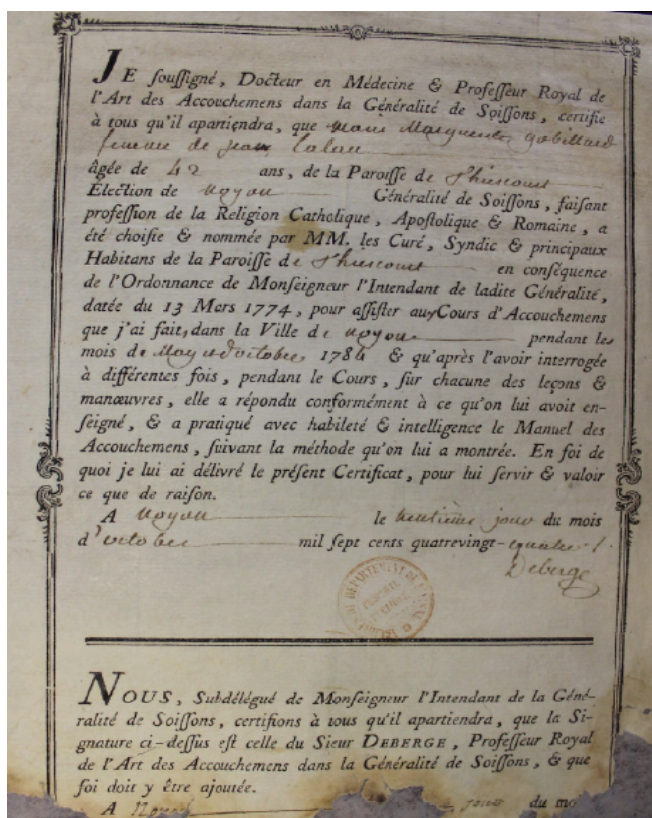 JE souſſigné, Docteur en Médecine & Profeſſeur Royal de
l'Art des Accouchemens dans la Généralité de Soiſſons, certifie
à tous qu'il apartiendra, que Marie Marguerite gobillard
femme de jean lalau
âgée de 42 ans, de la Paroiſſe de
Élection de noyon Généralité de Soiſſons, faiſant
profeſſion de la Religion Catholique, Apoſtolique & Romaine, a
été choiſie & nommée par MM. les Curé, Syndic & principaux
Habitans de la Paroiſſe de en conſéquence
de l'Ordonnance de Monſeigneur l'Intendant de ladite Généralité,
datée du 13 Mars 1774, pour aſſiſter aux Cours d'Accouchemens
que j'ai faits dans la Ville de noyon pendant les
mois de May et d'octobre 1784 & qu'après l'avoir interrogée
à différentes fois, pendant le Cours, ſur chacune des leçons &
manœuvres, elle a répondu conformément à ce qu'on lui avoit en-
ſeigné, & a pratiqué avec habileté & intelligence le Manuel des
Accouchemens, ſuivant la méthode qu'on lui a montrée. En foi de
quoi je lui ai délivré le préſent Certificat, pour lui ſervir & valoir
ce que de raiſon.
A noyon le jour du mois
d'octobre mil ſept cents quatrevingt-quatre
Deberge
NOUS, Subdélégué de Monſeigneur l'Intendant de la Géné-
ralité de Soiſſons, certifions à tous qu'il apartiendra, que la Si-
gnature ci-deſſus eſt celle du Sieur DEBERGE, Profeſſeur Royal
de l'Art des Accouchemens dans la Généralité de Soiſſons, & que
foi doit y être ajoutée.
A jour du mo